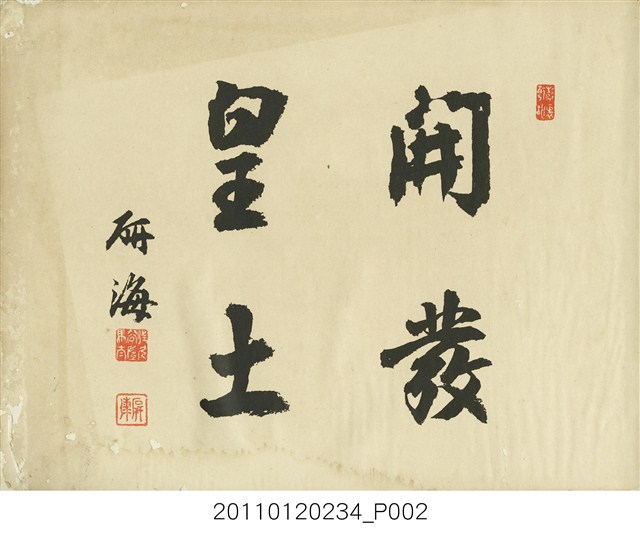 開發
皇土
研海
20110120234_P002